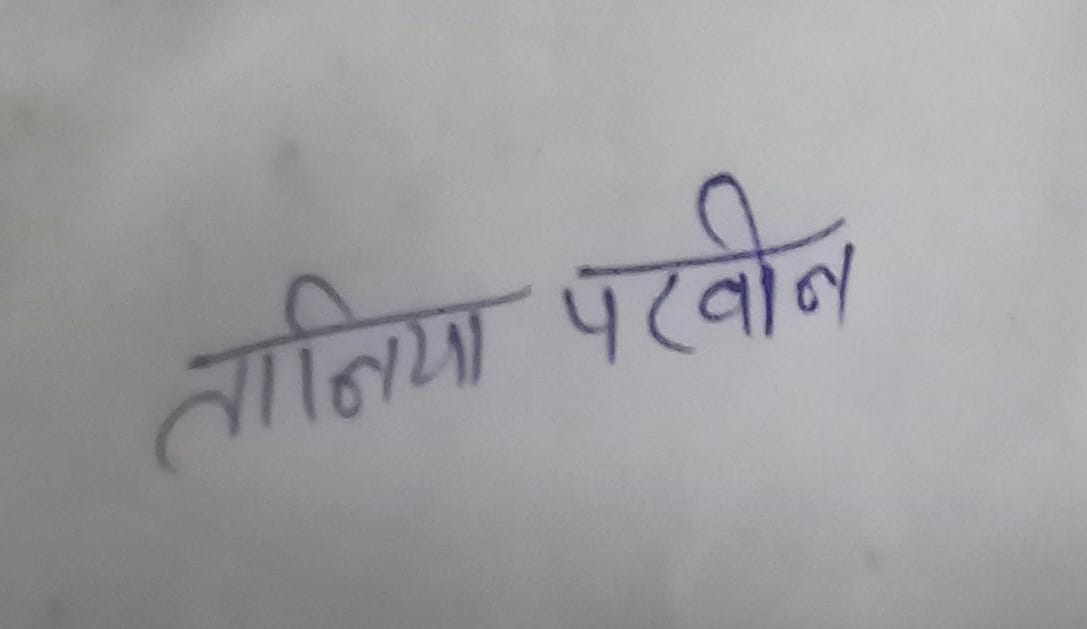 तानिया परवीन